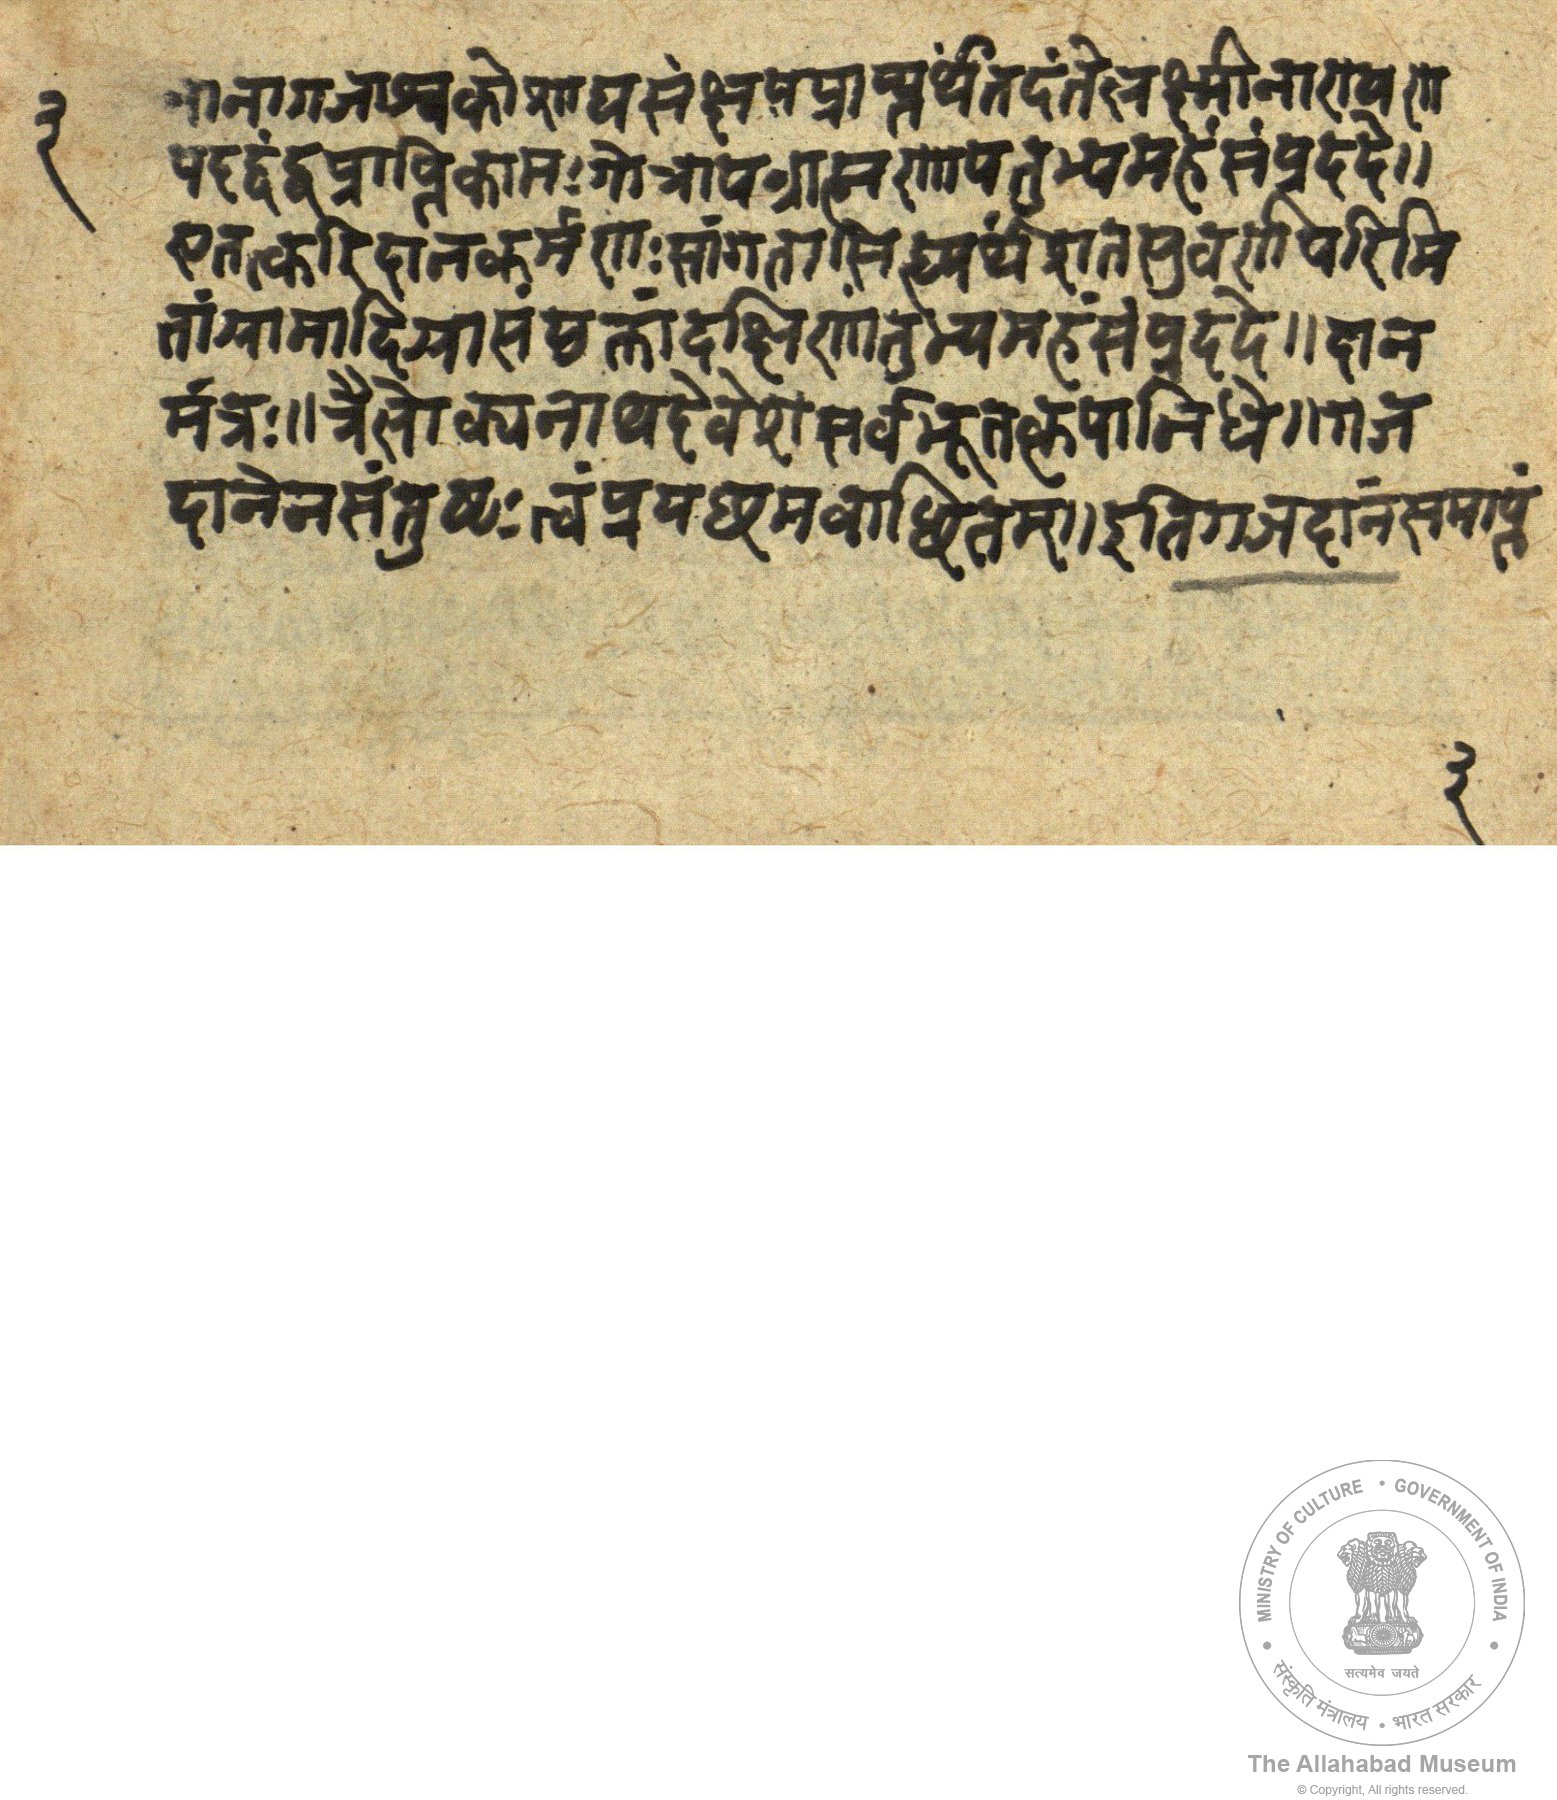 ३
नानागजाश्वकोशाद्यसंक्षयप्राप्त्यर्थंतदंतेलक्ष्मीनारायण
पदद्वंद्वप्राप्तिकामः गोत्रायब्राह्मणायतुभ्यमहंसंप्रददे॥
एतत्करिदानकर्मणः सांगतासिद्ध्यर्थंशतसुवर्णपरिमि
तांग्रामादिग्राससंयुक्तांदक्षिणांतुभ्यमहंसंप्रददे॥ दान
मंत्रः॥ त्रैलोक्यनाथदेवेशसर्वभूतकृपानिधे॥ गज
दानेनसंतुष्टः त्वंप्रयच्छममवाञ्छितम्॥ इतिगजदानंसमाप्तं
३
MINISTRY OF CULTURE • GOVERNMENT OF INDIA
सत्यमेव जयते
संस्कृति मंत्रालय • भारत सरकार
The Allahabad Museum
© Copyright, All rights reserved.